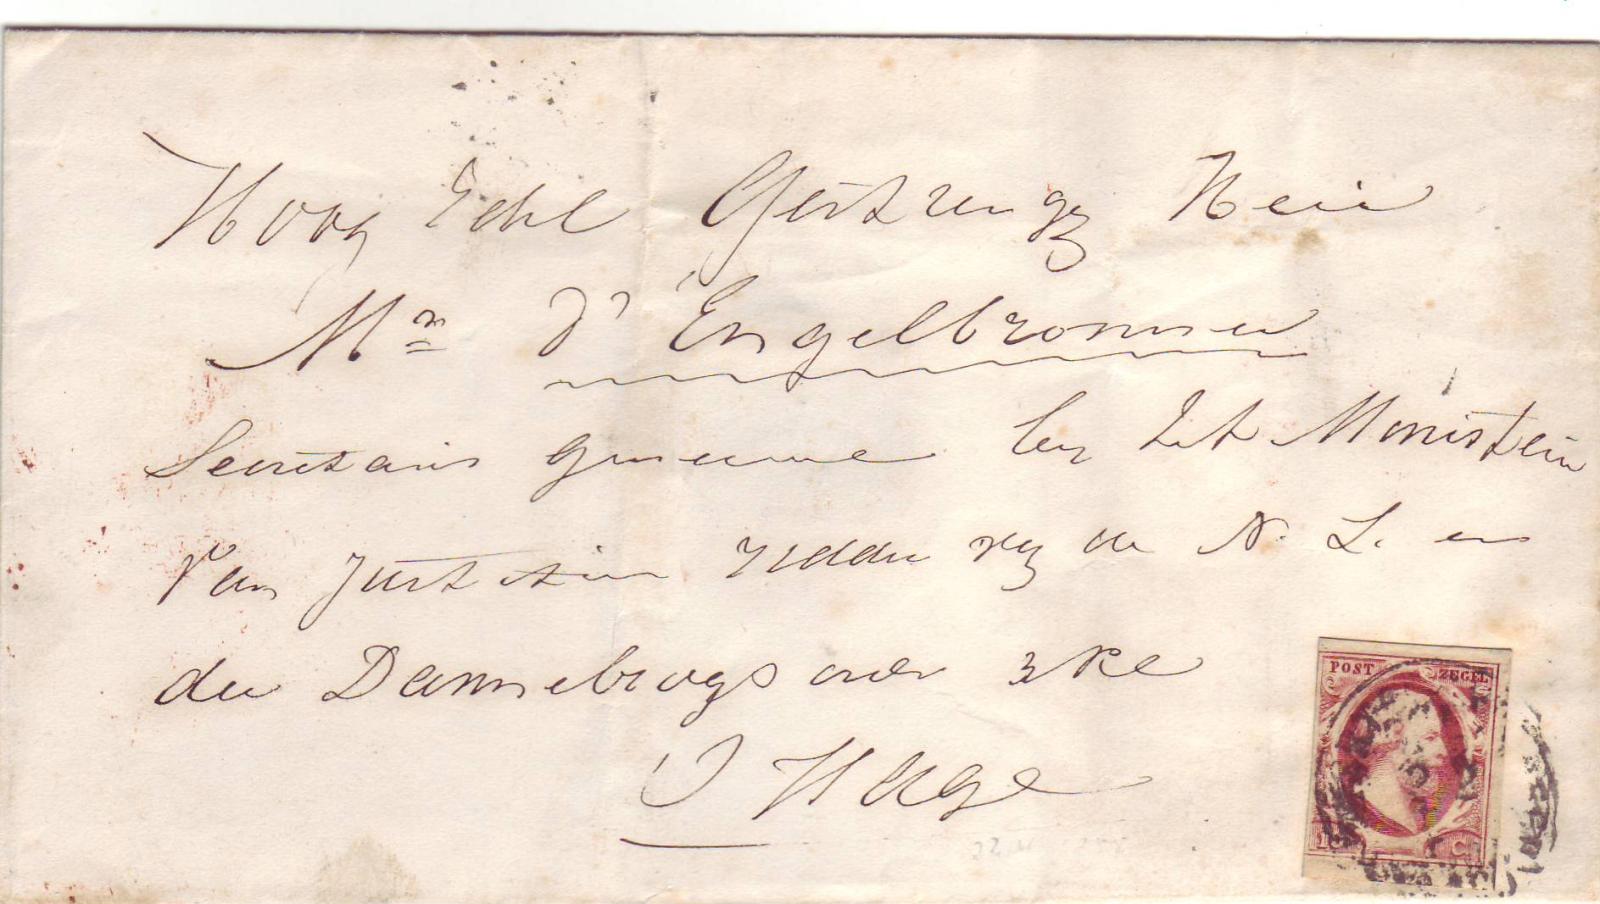 Hoog Edel Gestrenge Heer
Mr d'Engelbronner
Secretaris generaal by het Ministerie
Van Justitie ridder der N. L. en
der Dannebrogs order 3 Kl
s Hage
POST ZEGEL
10 C